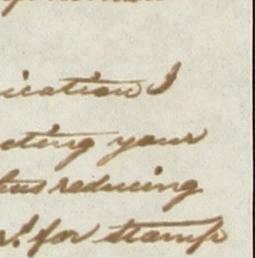 ication I
cting your
thus reducing
r! for stamp